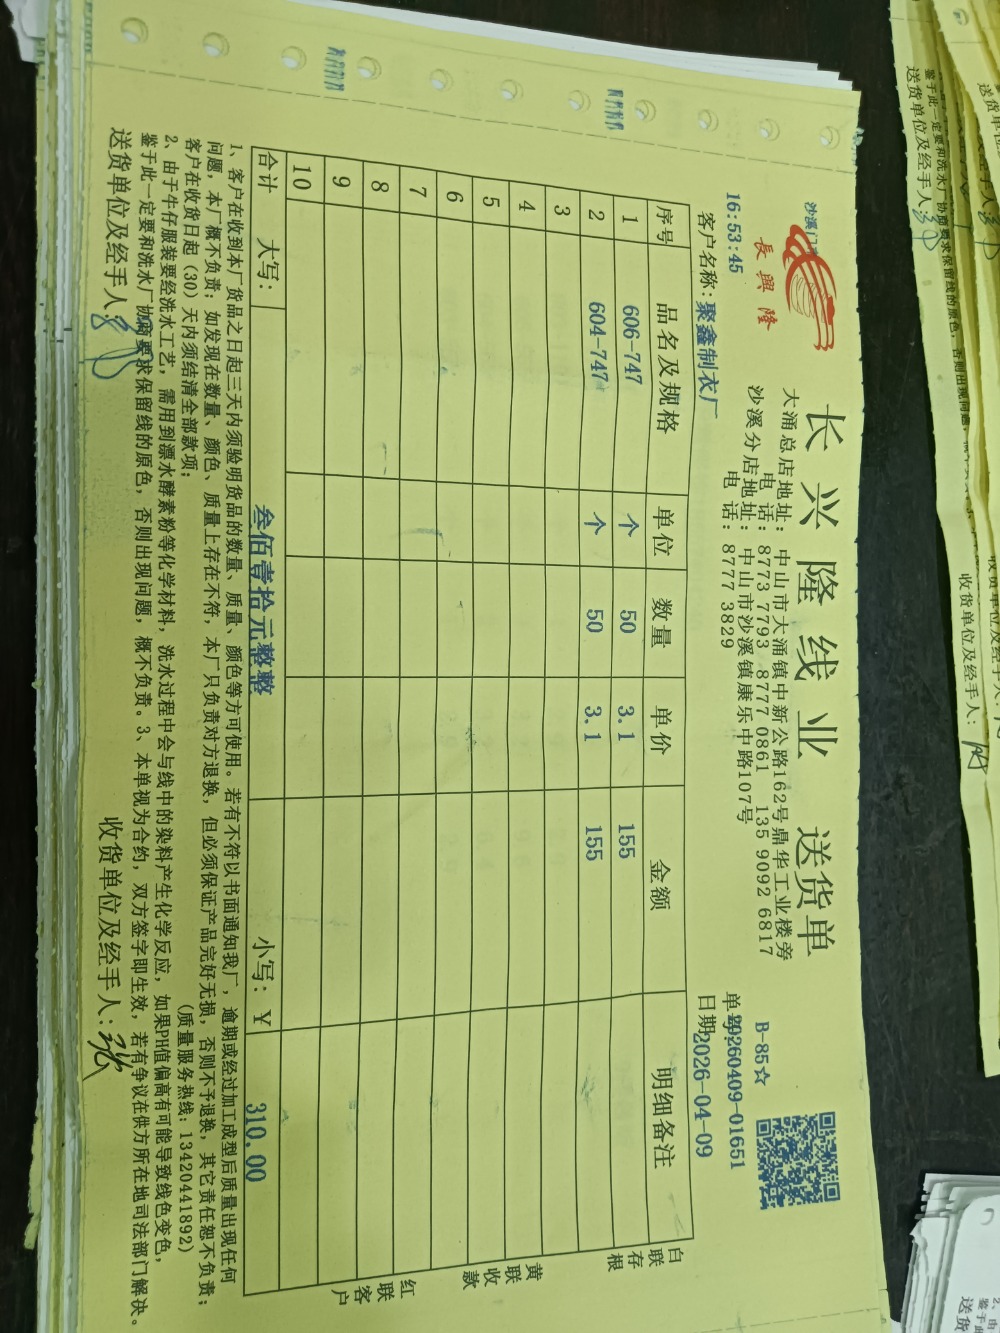 沙溪门
長興隆
长兴隆线业 送货单
大涌总店地址: 中山市大涌镇中新公路162号鼎华工业楼旁
电话: 8773 7793 8777 0861 135 9092 6817
沙溪分店地址: 中山市沙溪镇康乐中路107号
电话: 8777 3829
B-85☆
16:53:45
单号:20260409-01651
客户名称: 聚鑫制衣厂
日期 2026-04-09
序号 品名及规格 单位 数量 单价 金额 明细备注
1 606-747 个 50 3.1 155
2 604-747 个 50 3.1 155
3
4
5
6
7
8
9
10
合计 大写: 叁佰壹拾元整整 小写: ¥ 310.00
白联存根
黄联收款
红联客户
1、客户在收到本厂货品之日起三天内须验明货品的数量、质量、颜色等方可使用。若有不符以书面通知我厂,逾期或经过加工成型后质量出现任何
问题,本厂概不负责;如发现在数量、颜色、质量上存在不符,本厂只负责对方退换,但必须保证产品完好无损,否则不予退换,其它责任恕不负责;
客户在收货日起(30)天内须结清全部款项; (质量服务热线: 13420441892)
2、由于牛仔服装要经洗水工艺,需用到漂水酵素粉等化学材料,洗水过程中会与线中的染料产生化学反应,如果PH值偏高有可能导致线色变色,
鉴于此一定要和洗水厂协商要求保留线的原色,否则出现问题,概不负责。3、本单视为合约,双方签字即生效,若有争议在供方所在地司法部门解决。
送货单位及经手人: 收货单位及经手人: 张
鉴于此一定要和洗水厂协商要求保留线的原色,否则出现问题,
送货单位及经手人
收货单位及经手人: